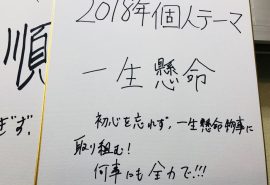 2018年個人テーマ
一生懸命
初心を忘れず、一生懸命物事に
取り組む!
何事にも全力で!!!
順
ぎず、